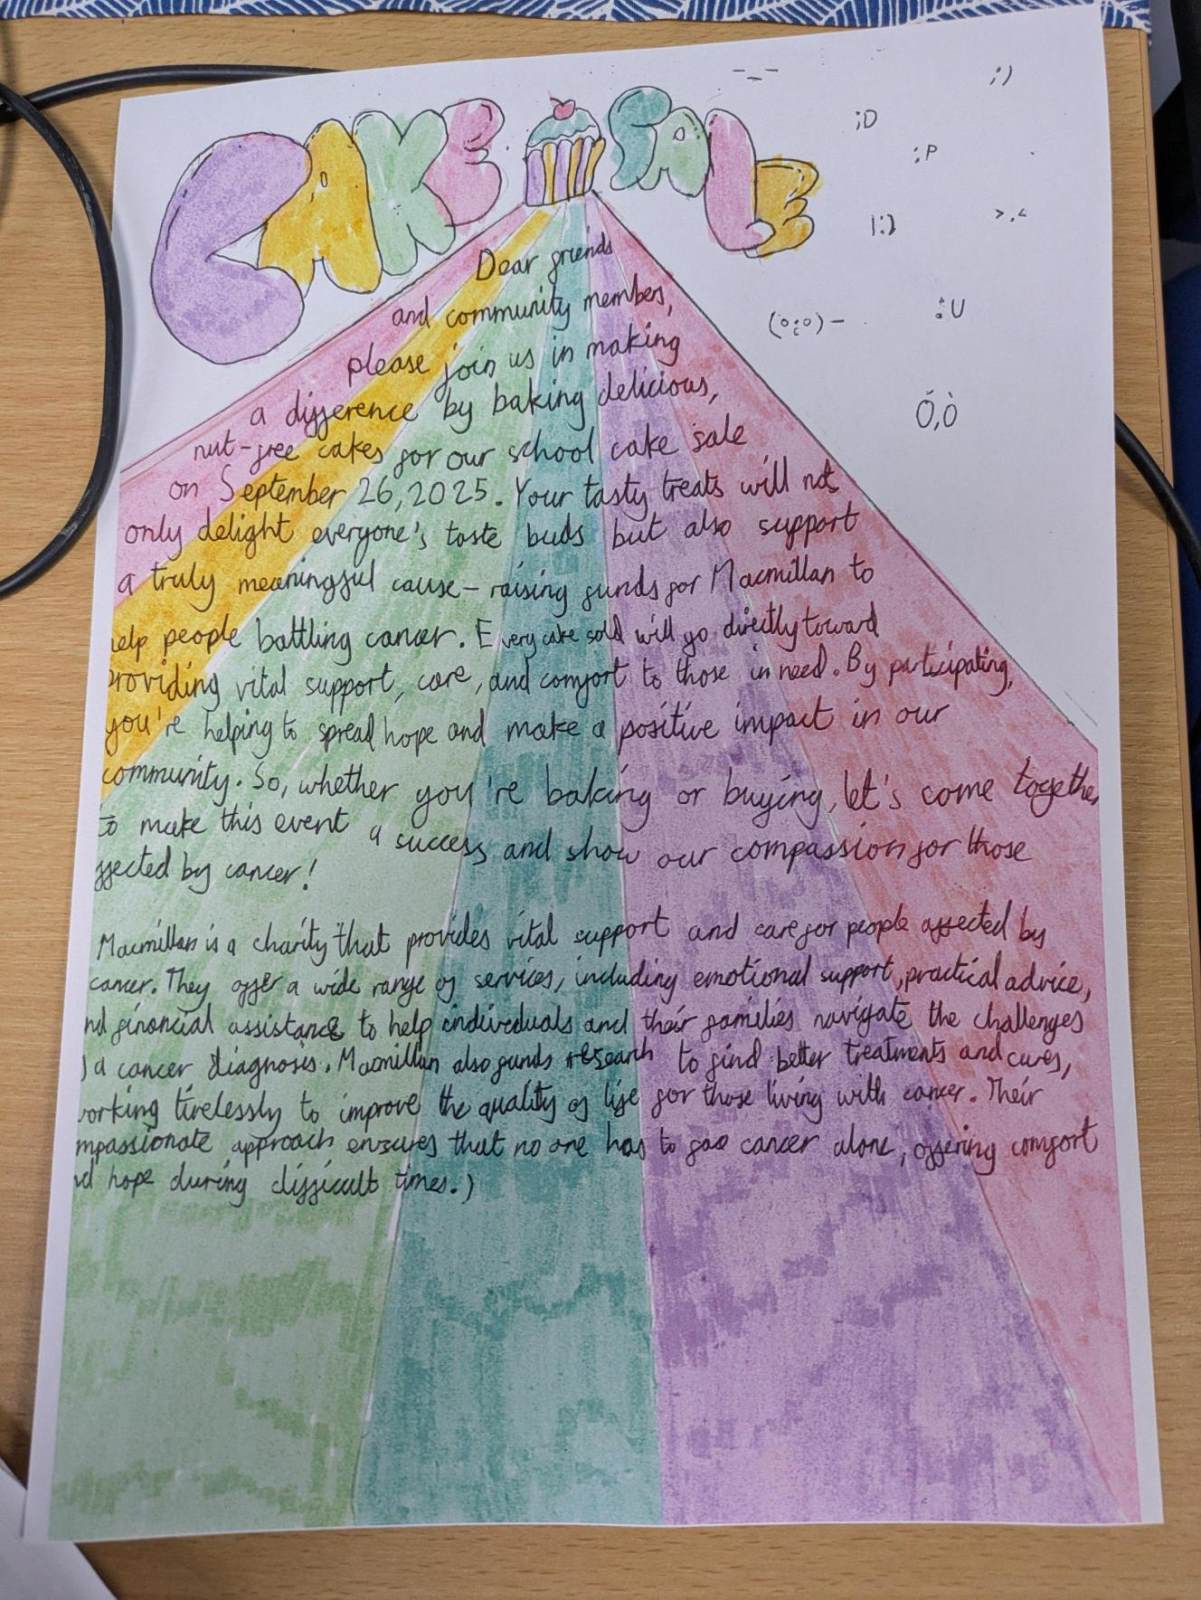 CAKE SALE
-_-
;)
;D
;P
|:)
>.<
:U
Ó,ò
Dear friends
and community members,
please join us in making
a difference by baking delicious,
nut-free cakes for our school cake sale
on September 26, 2025. Your tasty treats will not
only delight everyone's taste buds but also support
a truly meaningful cause - raising funds for Macmillan to
help people battling cancer. Every cake sold will go directly toward
providing vital support, care, and comfort to those in need. By participating,
you're helping to spread hope and make a positive impact in our
community. So, whether you're baking or buying, let's come together
to make this event a success and show our compassion for those
ffected by cancer!
Macmillan is a charity that provides vital support and care for people affected by
cancer. They offer a wide range of services, including emotional support, practical advice,
nd financial assistance to help individuals and their families navigate the challenges
a cancer diagnosis. Macmillan also funds research to find better treatments and cures,
working tirelessly to improve the quality of life for those living with cancer. Their
mpassionate approach ensures that no one has to face cancer alone, offering comfort
nd hope during difficult times.)